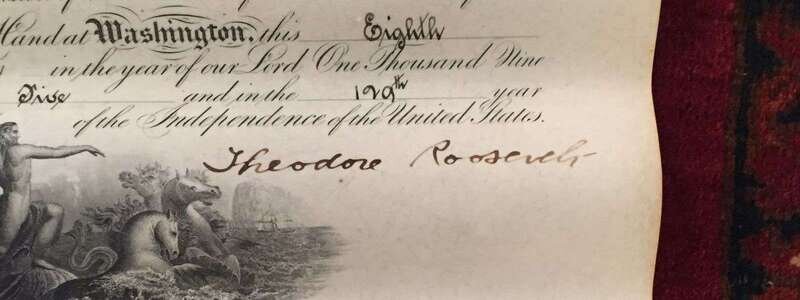 Hand at Washington, this Eighth
in the year of our Lord One Thousand Nine
Five and in the 129th year
of the Independence of the United States.
Theodore Roosevelt